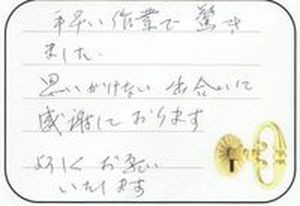 手早い作業で驚き
ました.
思いがけない出合いに
感謝しております
よろしくお願い
いたします